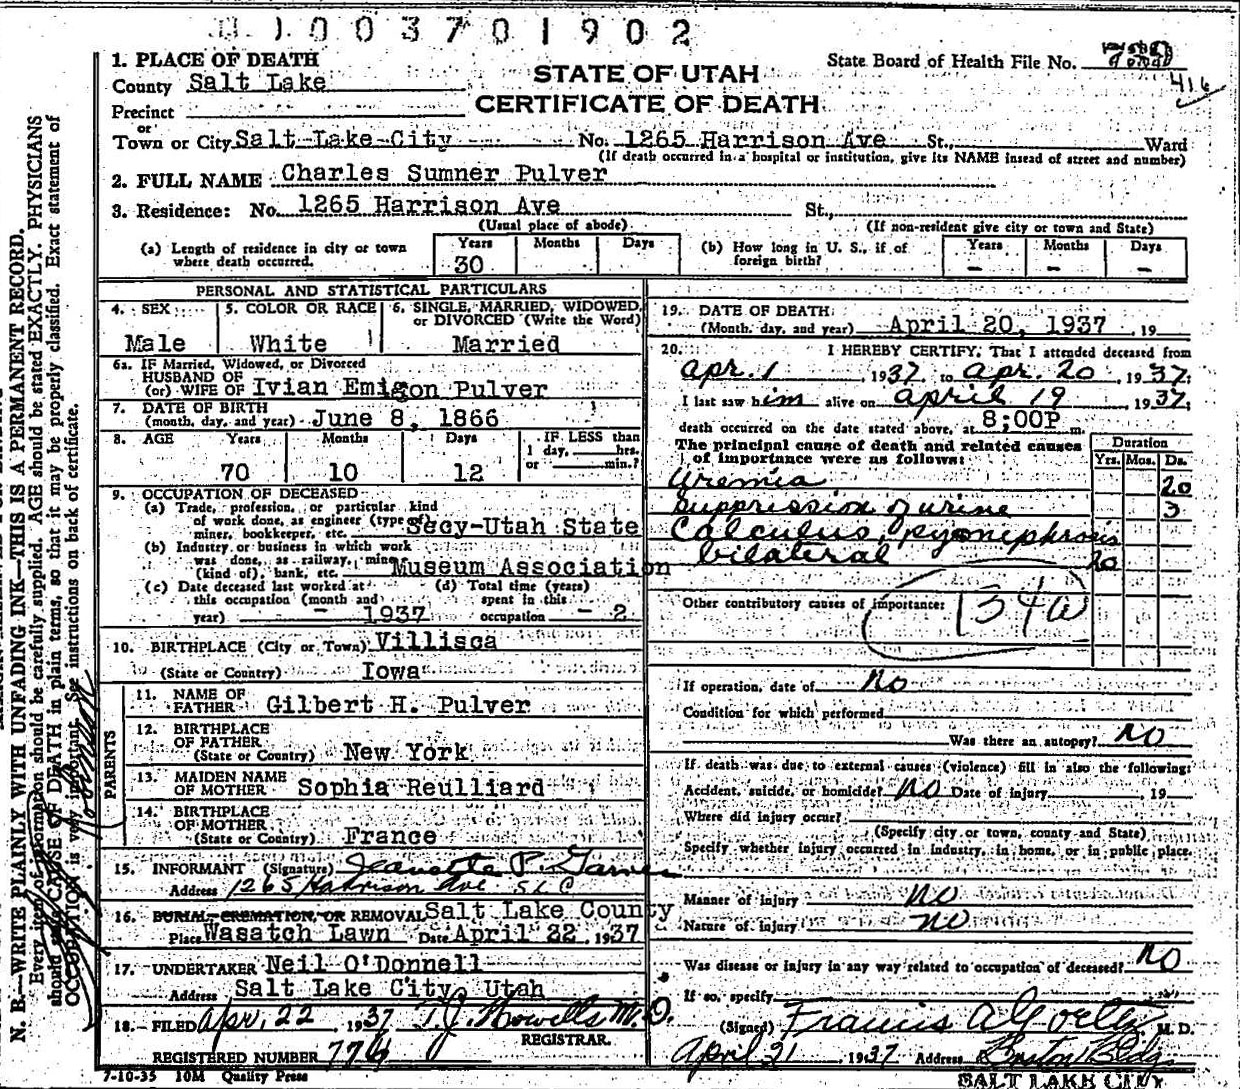 1003701902
1. PLACE OF DEATH
STATE OF UTAH
CERTIFICATE OF DEATH
State Board of Health File No.
416
County Salt Lake
Precinct
or
Town or City Salt Lake City No. 1265 Harrison Ave St., Ward
(If death occurred in a hospital or institution, give its NAME insead of street and number)
2. FULL NAME Charles Sumner Pulver
3. Residence: No. 1265 Harrison Ave St.,
(Usual place of abode) (If non-resident give city or town and State)
(a) Length of residence in city or town where death occurred. Years 30 Months Days
(b) How long in U. S., if of foreign birth? Years - Months - Days -
PERSONAL AND STATISTICAL PARTICULARS
4. SEX Male
5. COLOR OR RACE White
6. SINGLE, MARRIED, WIDOWED, or DIVORCED (Write the Word) Married
6a. If Married, Widowed, or Divorced
HUSBAND OF
(or) WIFE OF Ivian Emigon Pulver
7. DATE OF BIRTH
(month, day, and year) June 8, 1866
8. AGE Years 70 Months 10 Days 12 IF LESS than 1 day, hrs. or min.?
9. OCCUPATION OF DECEASED
(a) Trade, profession, or particular kind of work done, as engineer (type of miner, bookkeeper, etc. Secy-Utah State
(b) Industry or business in which work was done, as railway, mine (kind of), bank, etc. Museum Association
(c) Date deceased last worked at this occupation (month and year) 1937
(d) Total time (years) spent in this occupation - 2
10. BIRTHPLACE (City or Town) Villisca
(State or Country) Iowa
PARENTS
11. NAME OF FATHER Gilbert H. Pulver
12. BIRTHPLACE OF FATHER
(State or Country) New York
13. MAIDEN NAME OF MOTHER Sophia Reulliard
14. BIRTHPLACE OF MOTHER
(State or Country) France
15. INFORMANT (Signature) Jeanette P. Garner
Address 1265 Harrison Ave S.L.C
16. BURIAL, CREMATION, OR REMOVAL Salt Lake County
Place Wasatch Lawn Date April 22 1937
17. UNDERTAKER Neil O'Donnell
Address Salt Lake City, Utah
18. FILED Apr. 22 1937 T.J. Howells M.D.
REGISTRAR.
REGISTERED NUMBER 774
7-10-35 10M Quality Press
19. DATE OF DEATH
(Month, day, and year) April 20, 1937, 19
20. I HEREBY CERTIFY, That I attended deceased from
Apr. 1, 1937, to Apr. 20, 1937;
I last saw him alive on April 19, 1937;
death occurred on the date stated above, at 8;00P m.
The principal cause of death and related causes of importance were as follows: Duration Yrs. Mos. Ds.
Uremia 20
Suppression of urine 3
Calculus, pyonephrosis
bilateral 20
Other contributory causes of importance: 134a
If operation, date of No
Condition for which performed
Was there an autopsy? No
If death was due to external causes (violence) fill in also the following:
Accident, suicide, or homicide? No Date of injury 19
Where did injury occur?
(Specify city or town, county and State)
Specify whether injury occurred in industry, in home, or in public place.
Manner of injury No
Nature of injury no
Was disease or injury in any way related to occupation of deceased? No
If so, specify
(Signed) Francis A Goeltz, M. D.
April 21 1937 Address Boston Bldg
SALT LAKE CITY
N. B.—WRITE PLAINLY WITH UNFADING INK—THIS IS A PERMANENT RECORD.
Every item of information should be carefully supplied. AGE should be stated EXACTLY. PHYSICIANS
should state CAUSE OF DEATH in plain terms, so that it may be properly classified. Exact statement of
OCCUPATION is very important. See instructions on back of certificate.